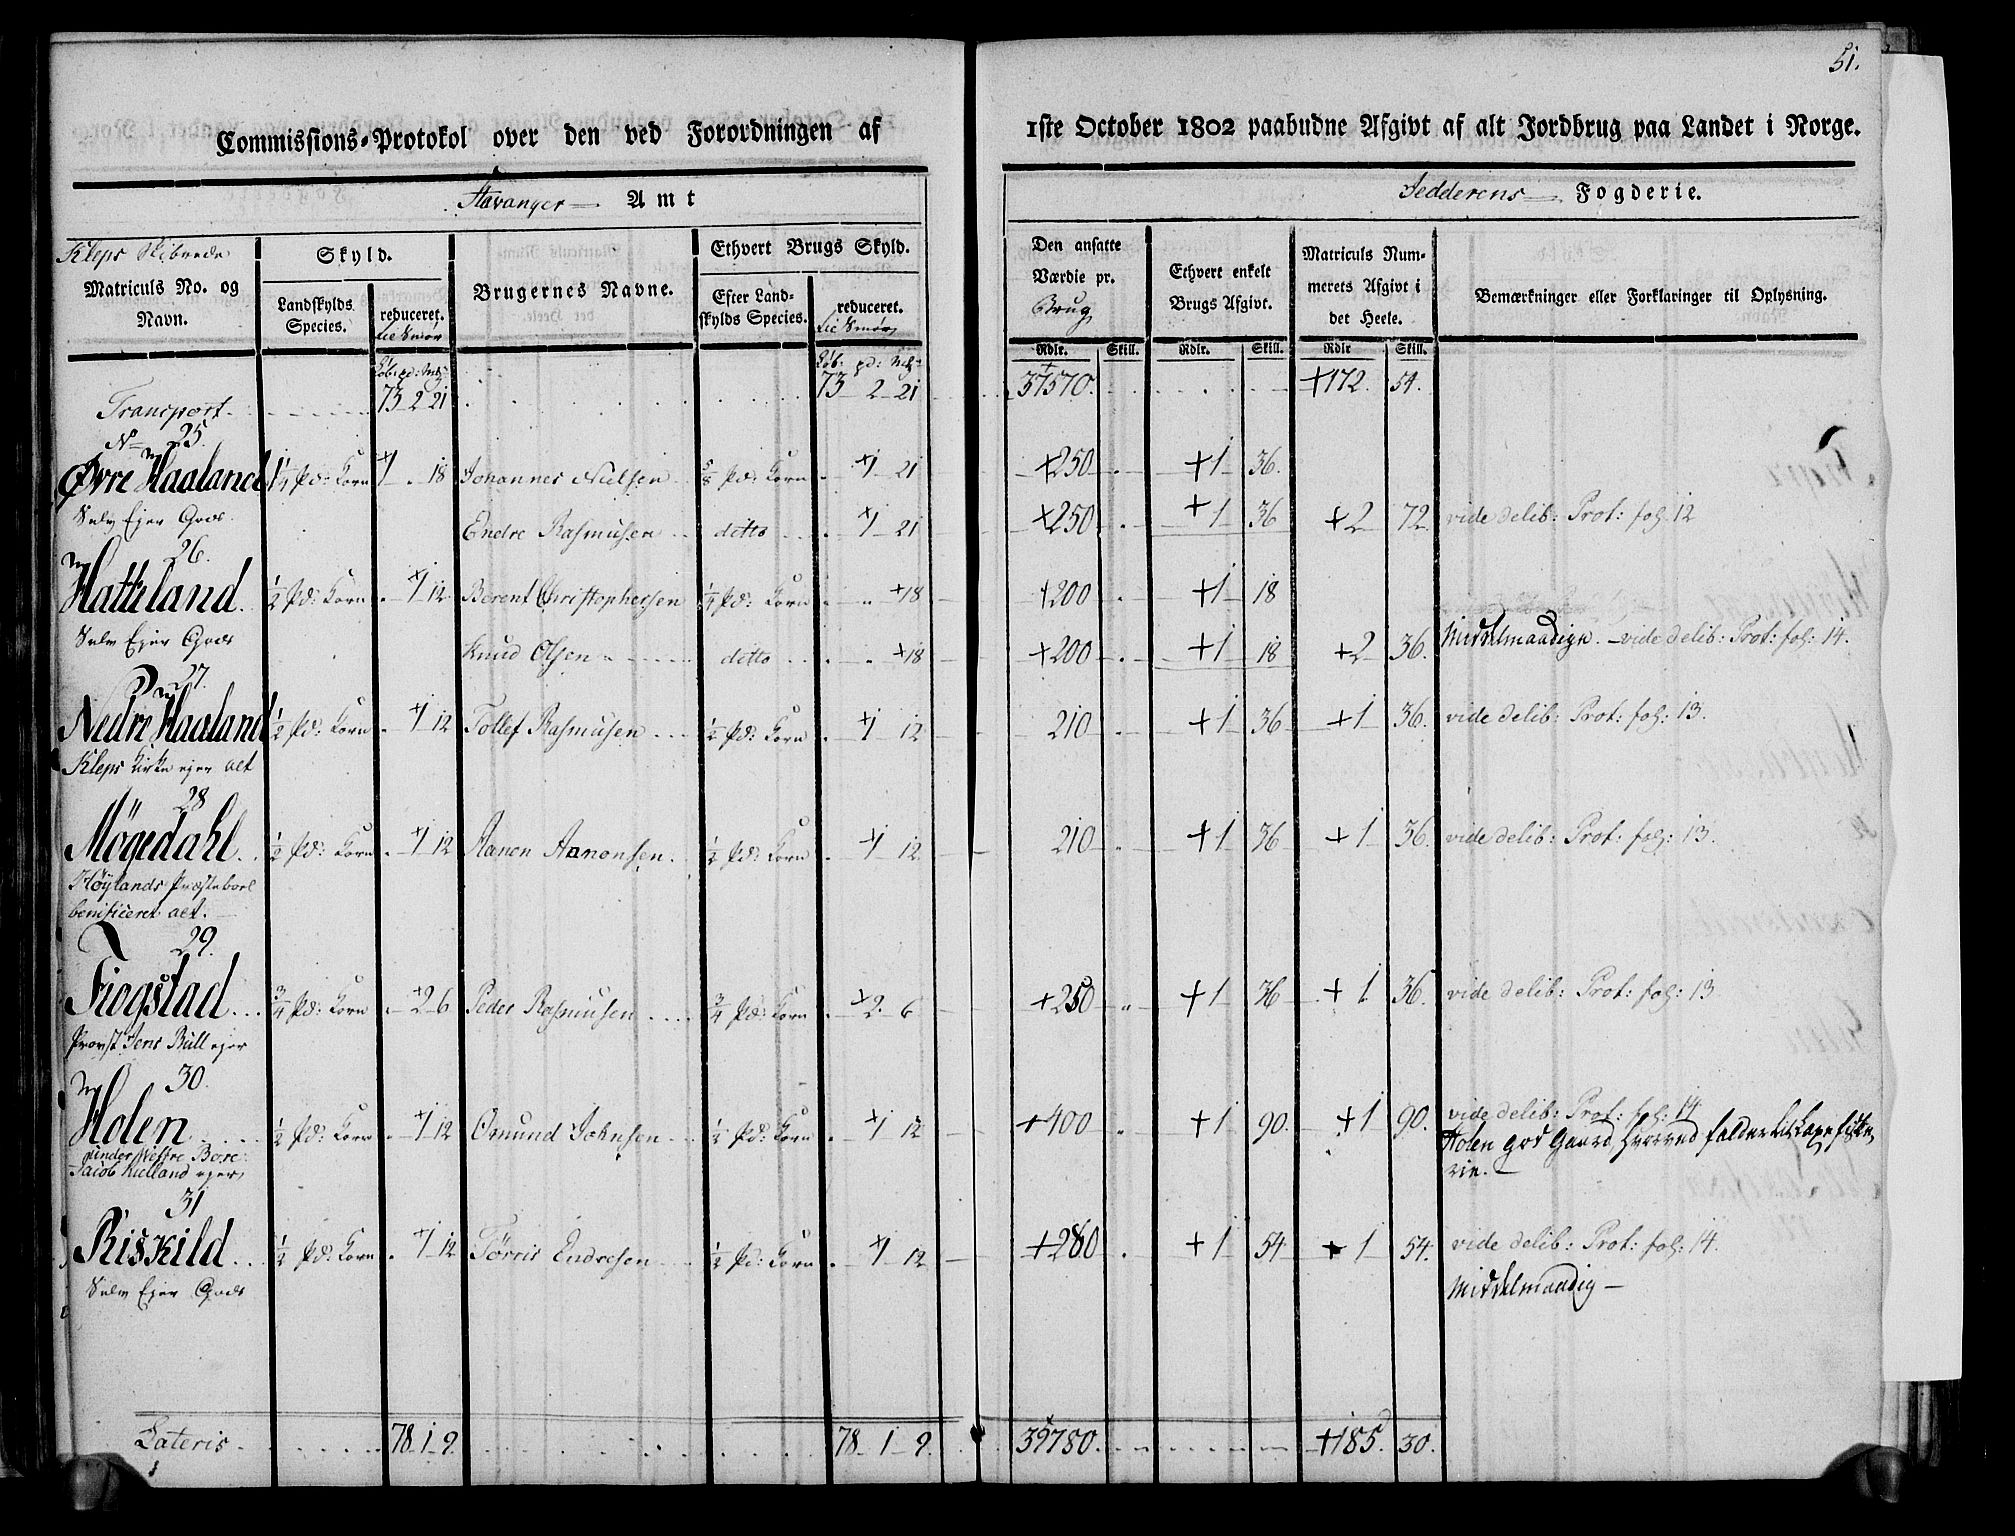 51.
Commissions-Protokol over den ved Forordningen af 1ste October 1802 paabudne Afgivt af alt Jordbrug paa Landet i Norge.
Stavanger Amt
Jedderens Fogderie.
Kleps Skibrede
Matriculs No. og Navn.
Skyld.
Landskylds Species.
reduceret.
Lie Smør
Brugernes Navne.
Ethvert Brugs Skyld.
Efter Landskylds Species.
reduceret.
Lie Smør
Den ansatte Værdie pr. Brug
Ethvert enkelt Brugs Afgivt.
Matriculs Nummerets Afgivt i det Heele.
Bemærkninger eller Forklaringer til Oplysning.
Løb: pd: Mk: Løb: pd: Mk: Rdlr. Skill. Rdlr. Skill. Rdlr Skill.
Transport 73 2 21 73 2 21 37570. +172. 54.
No 25.
Øvre Haaland 1¼ Pd: Korn +1 . 18 Johannes Nielsen ⅝ Pd: Korn +1 21 +250 +1 36.
Selv Ejer Gods. Endre Rasmusen detto +1 21 +250 +1 36 +2 72 vide delib: Prot: fol: 12
26.
Hatteland. ½ Pd: Korn +1 12 Berent Christophersen ¼ Pd: Korn +18 +200 +1 18
Selv Ejer Gods Knud Olsen detto +18 +200 +1 18 +2 36. Middelmaadige. vide delib: Prot: fol: 14.
27.
Nedre Haaland ½ Pd: Korn +1 12 Tollef Rasmusen ½ Pd: Korn +1 12 210 +1 36 +1 36. vide delib: Prot: fol: 13.
Kleps Kirke ejer alt
28
Møgedahl ½ Pd: Korn +1 12 Aanen Aanonsen ½ Pd: Korn +1 12 210 +1 36 +1 36. vide delib: Prot: fol: 13.
Høylands Præstebord
benificeret alt.
29.
Fiogstad ¾ Pd: Korn +2 6 Peder Rasmusen ¾ Pd: Korn +2. 6 +250 +1 36 +1 36. vide delib: Prot: fol: 13
Provst Jens Bull ejer
30.
Holen ½ Pd: Korn +1 12 Omund Johnsen ½ Pd: Korn +1 12 +400 +1 90. +1 90. vide delib: Prot: fol: 14
under Westre Bore
Jacob Kielland ejer
Holen god Gaard hvorved falder til Laxefiske
rie.
31
Riskild ½ Pd: Korn +1 12 Tørris Endresen ½ Pd: Korn +1 12 +280 +1 54 +1 54. vide delib: Prot: fol: 14.
Selv Ejer Gods
Middelmaadig
Lateris 78. 1 9. 78 1 9. 39780. +185. 30.